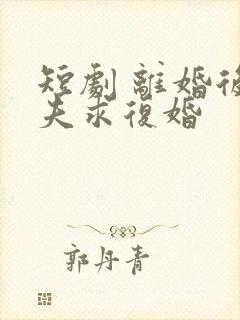 短劇 離婚後
夫求復婚
郭丹青